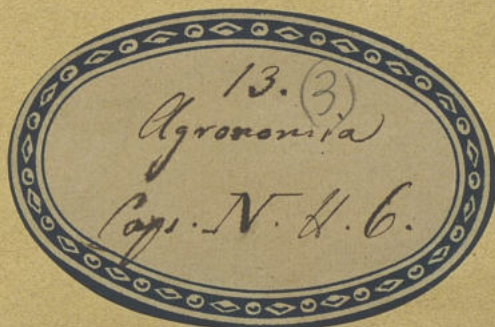 13. (3)
Agronomia
Caps. N. H. 6.